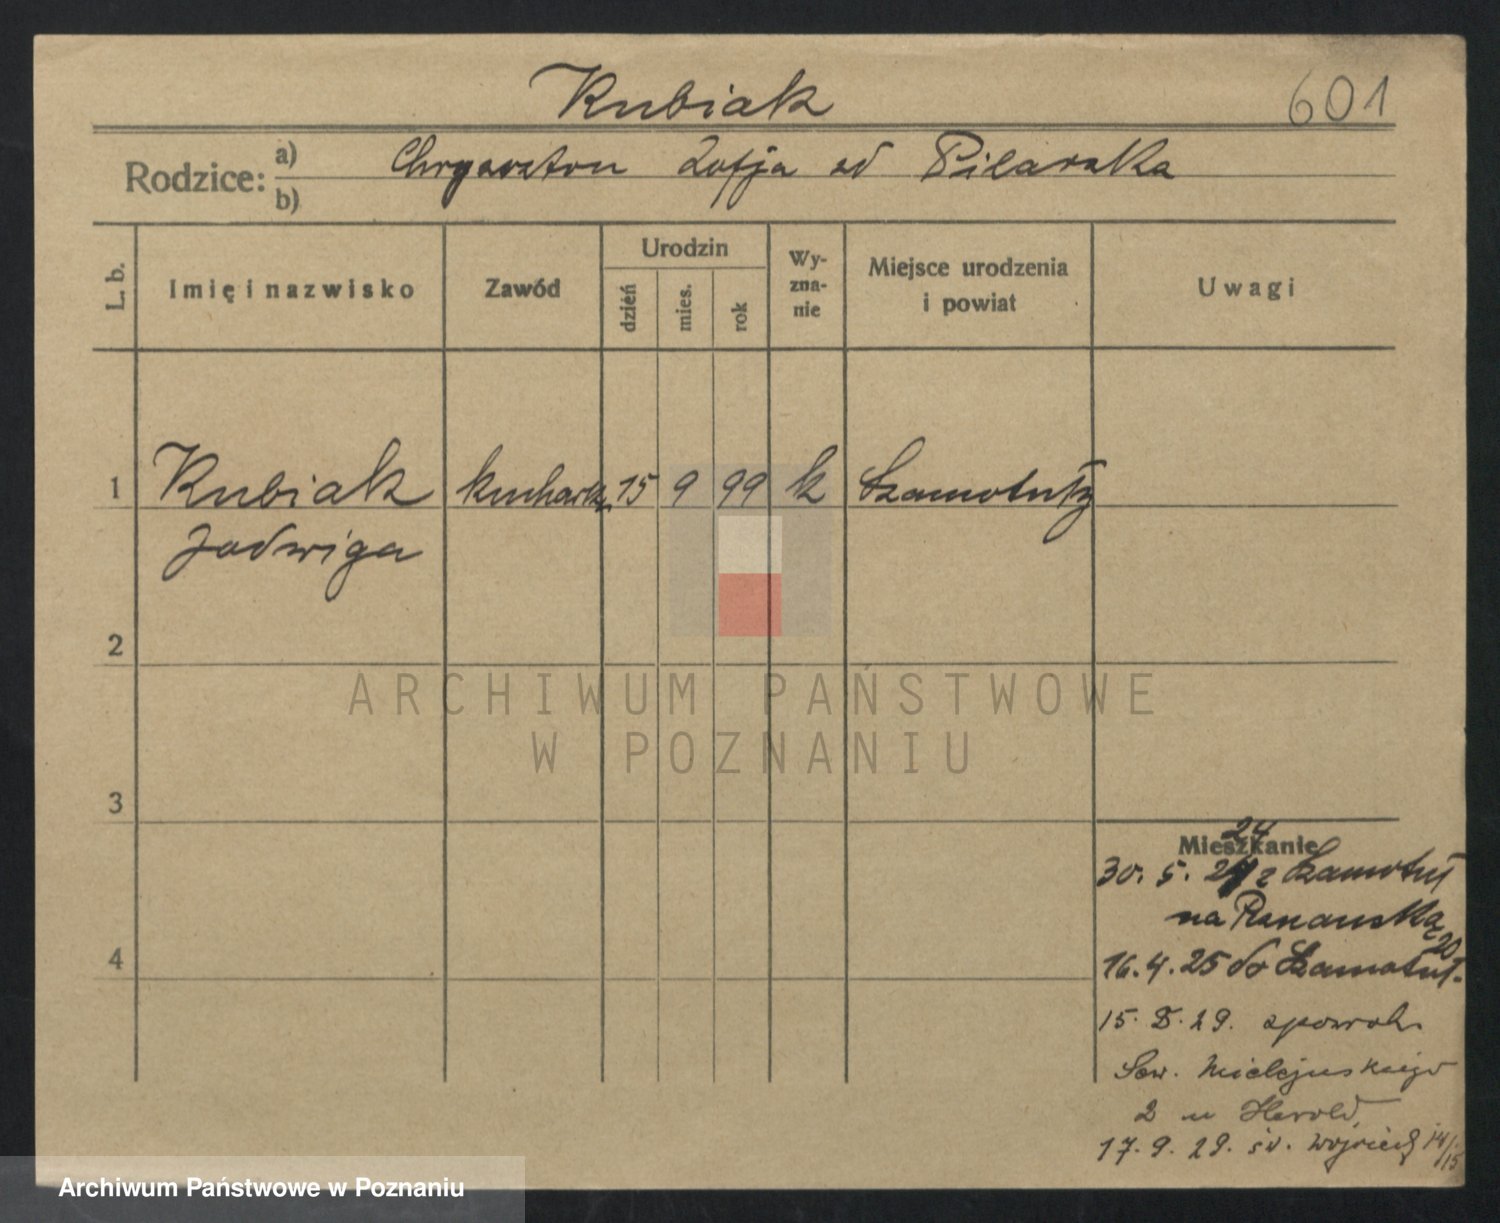 Kubiak
601
Rodzice:
a) Chryzostom Zofja od Pilarska
b)
L. b.
Imię i nazwisko
Zawód
Urodzin
dzień
mies.
rok
Wy-
zna-
nie
Miejsce urodzenia
i powiat
Uwagi
1
Kubiak kucharka 15 9 99 k Szamotuły
Jadwiga
2
3
4
ARCHIWUM PAŃSTWOWE
W POZNANIU
Mieszkanie
24
30. 5. z Szamotuł
na
20
16. 4. 25 do Szamotuł.
15. 29.
Sew. Mielżyńskiego
2 u Herold
17. 9. 29. św. Wojciech 14/15
Archiwum Państwowe w Poznaniu